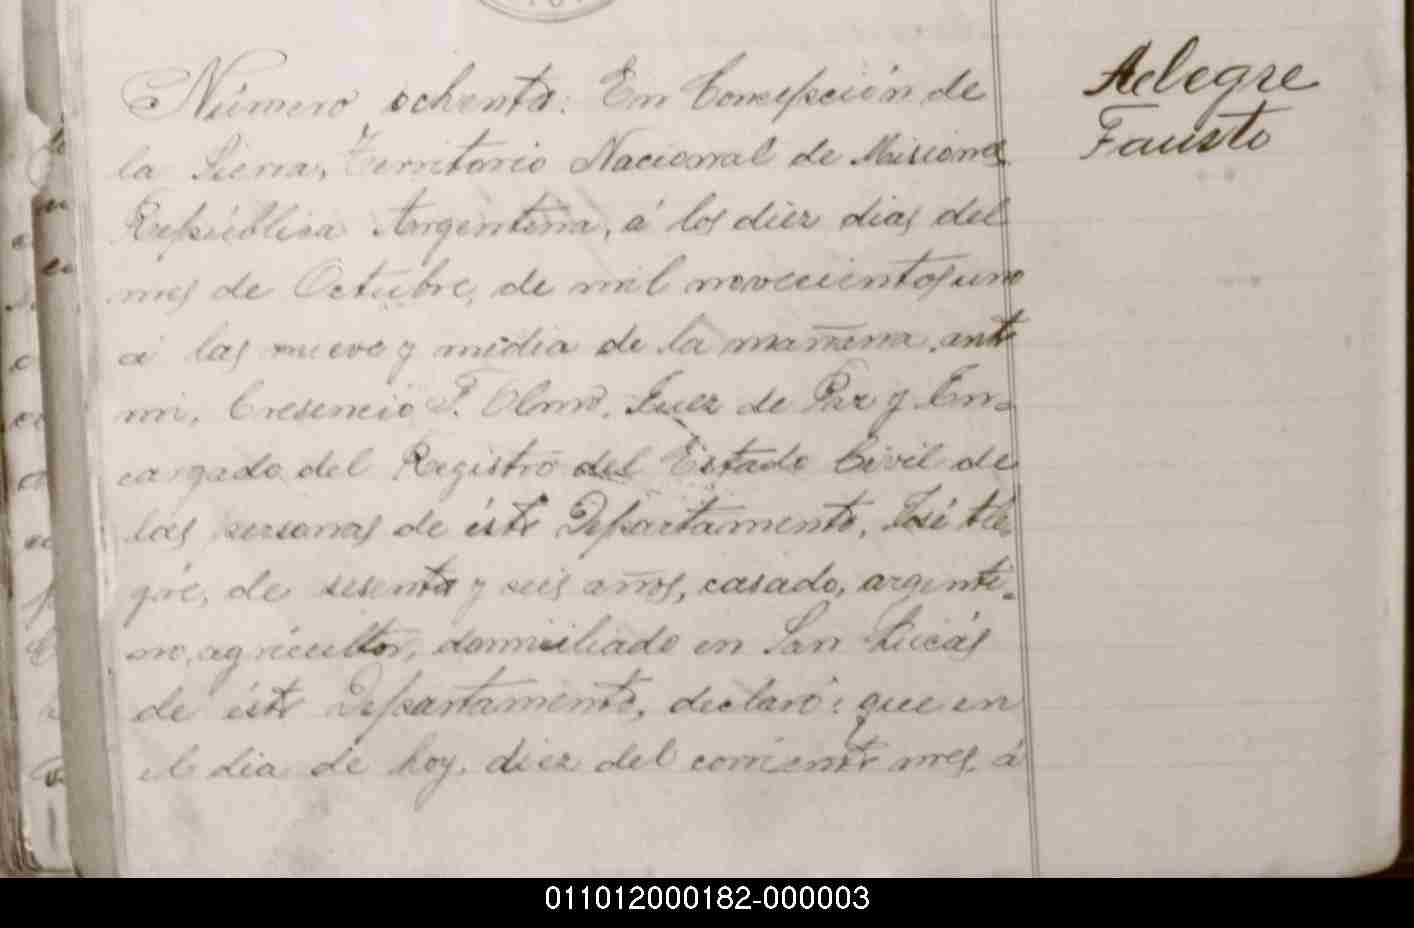 Número ochenta: En Concepción de
la Sierra, Territorio Nacional de Misiones
República Argentina, á los diez dias del
mes de Octubre, de mil novecientos uno
á las nueve y media de la mañana, ante
mi, Cresencio F. Olmo, Juez de Paz y En-
cargado del Registro del Estado Civil de
las personas de éste Departamento, José Ale-
gre, de sesenta y seis años, casado, argenti-
no, agricultor, domiciliado en San Lucás
de éste Departamento, declaró: que en
el dia de hoy, diez del corriente mes, á
Alegre
Fausto
011012000182-000003